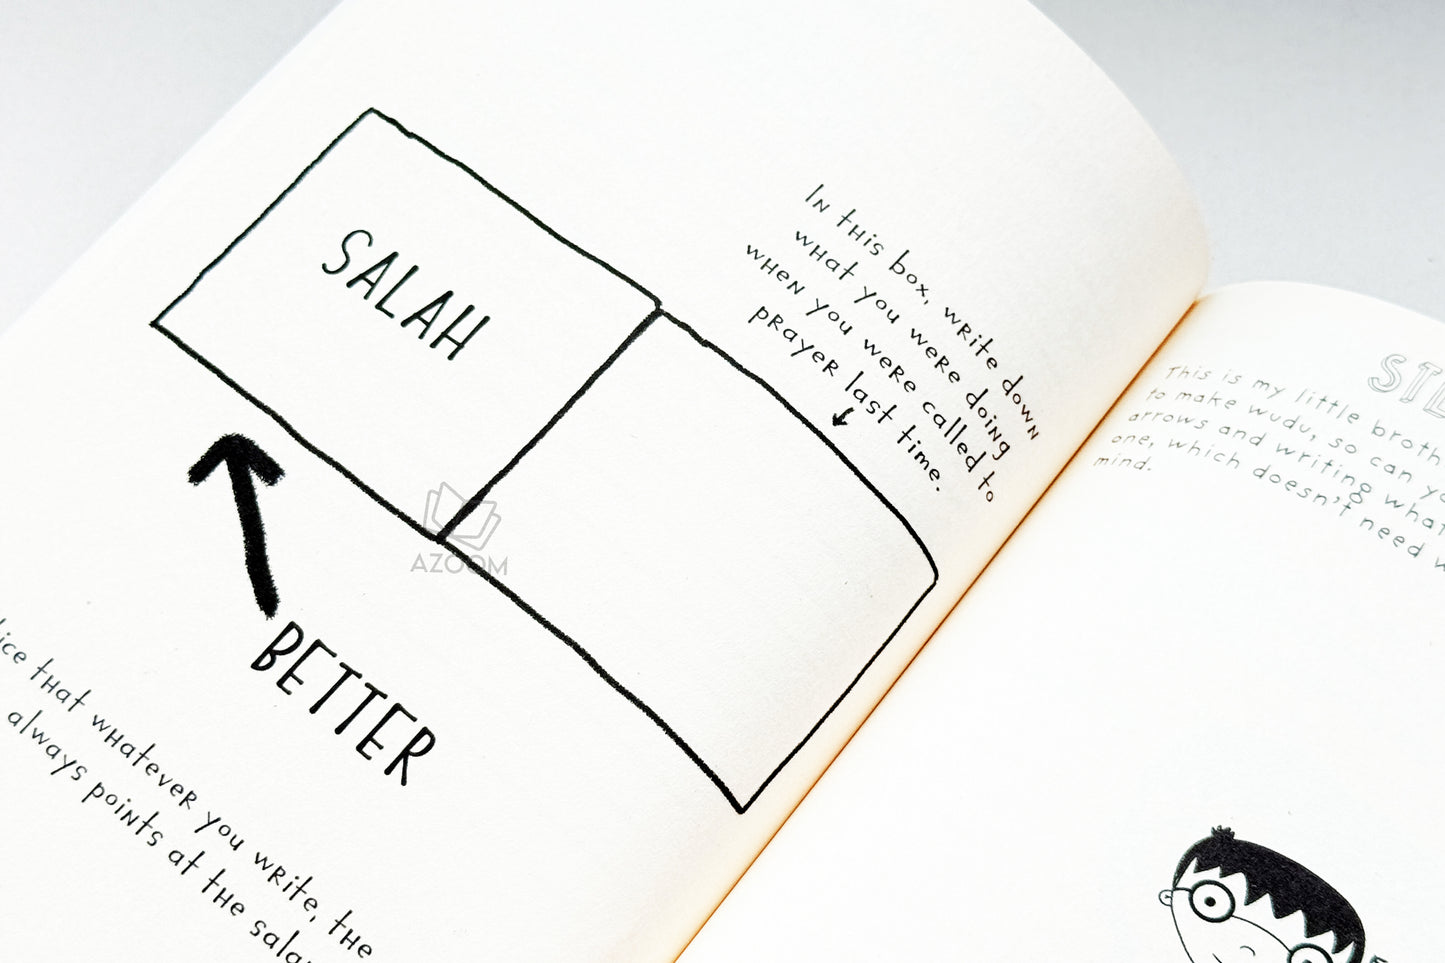 SALAH
In this box, write down
what you were doing
when you were called to
prayer last time.
BETTER
that whatever you write, the
always points at the
AZOOM
This is my little
to make wudu, so can
arrows and writing
one, which doesn't need
mind.